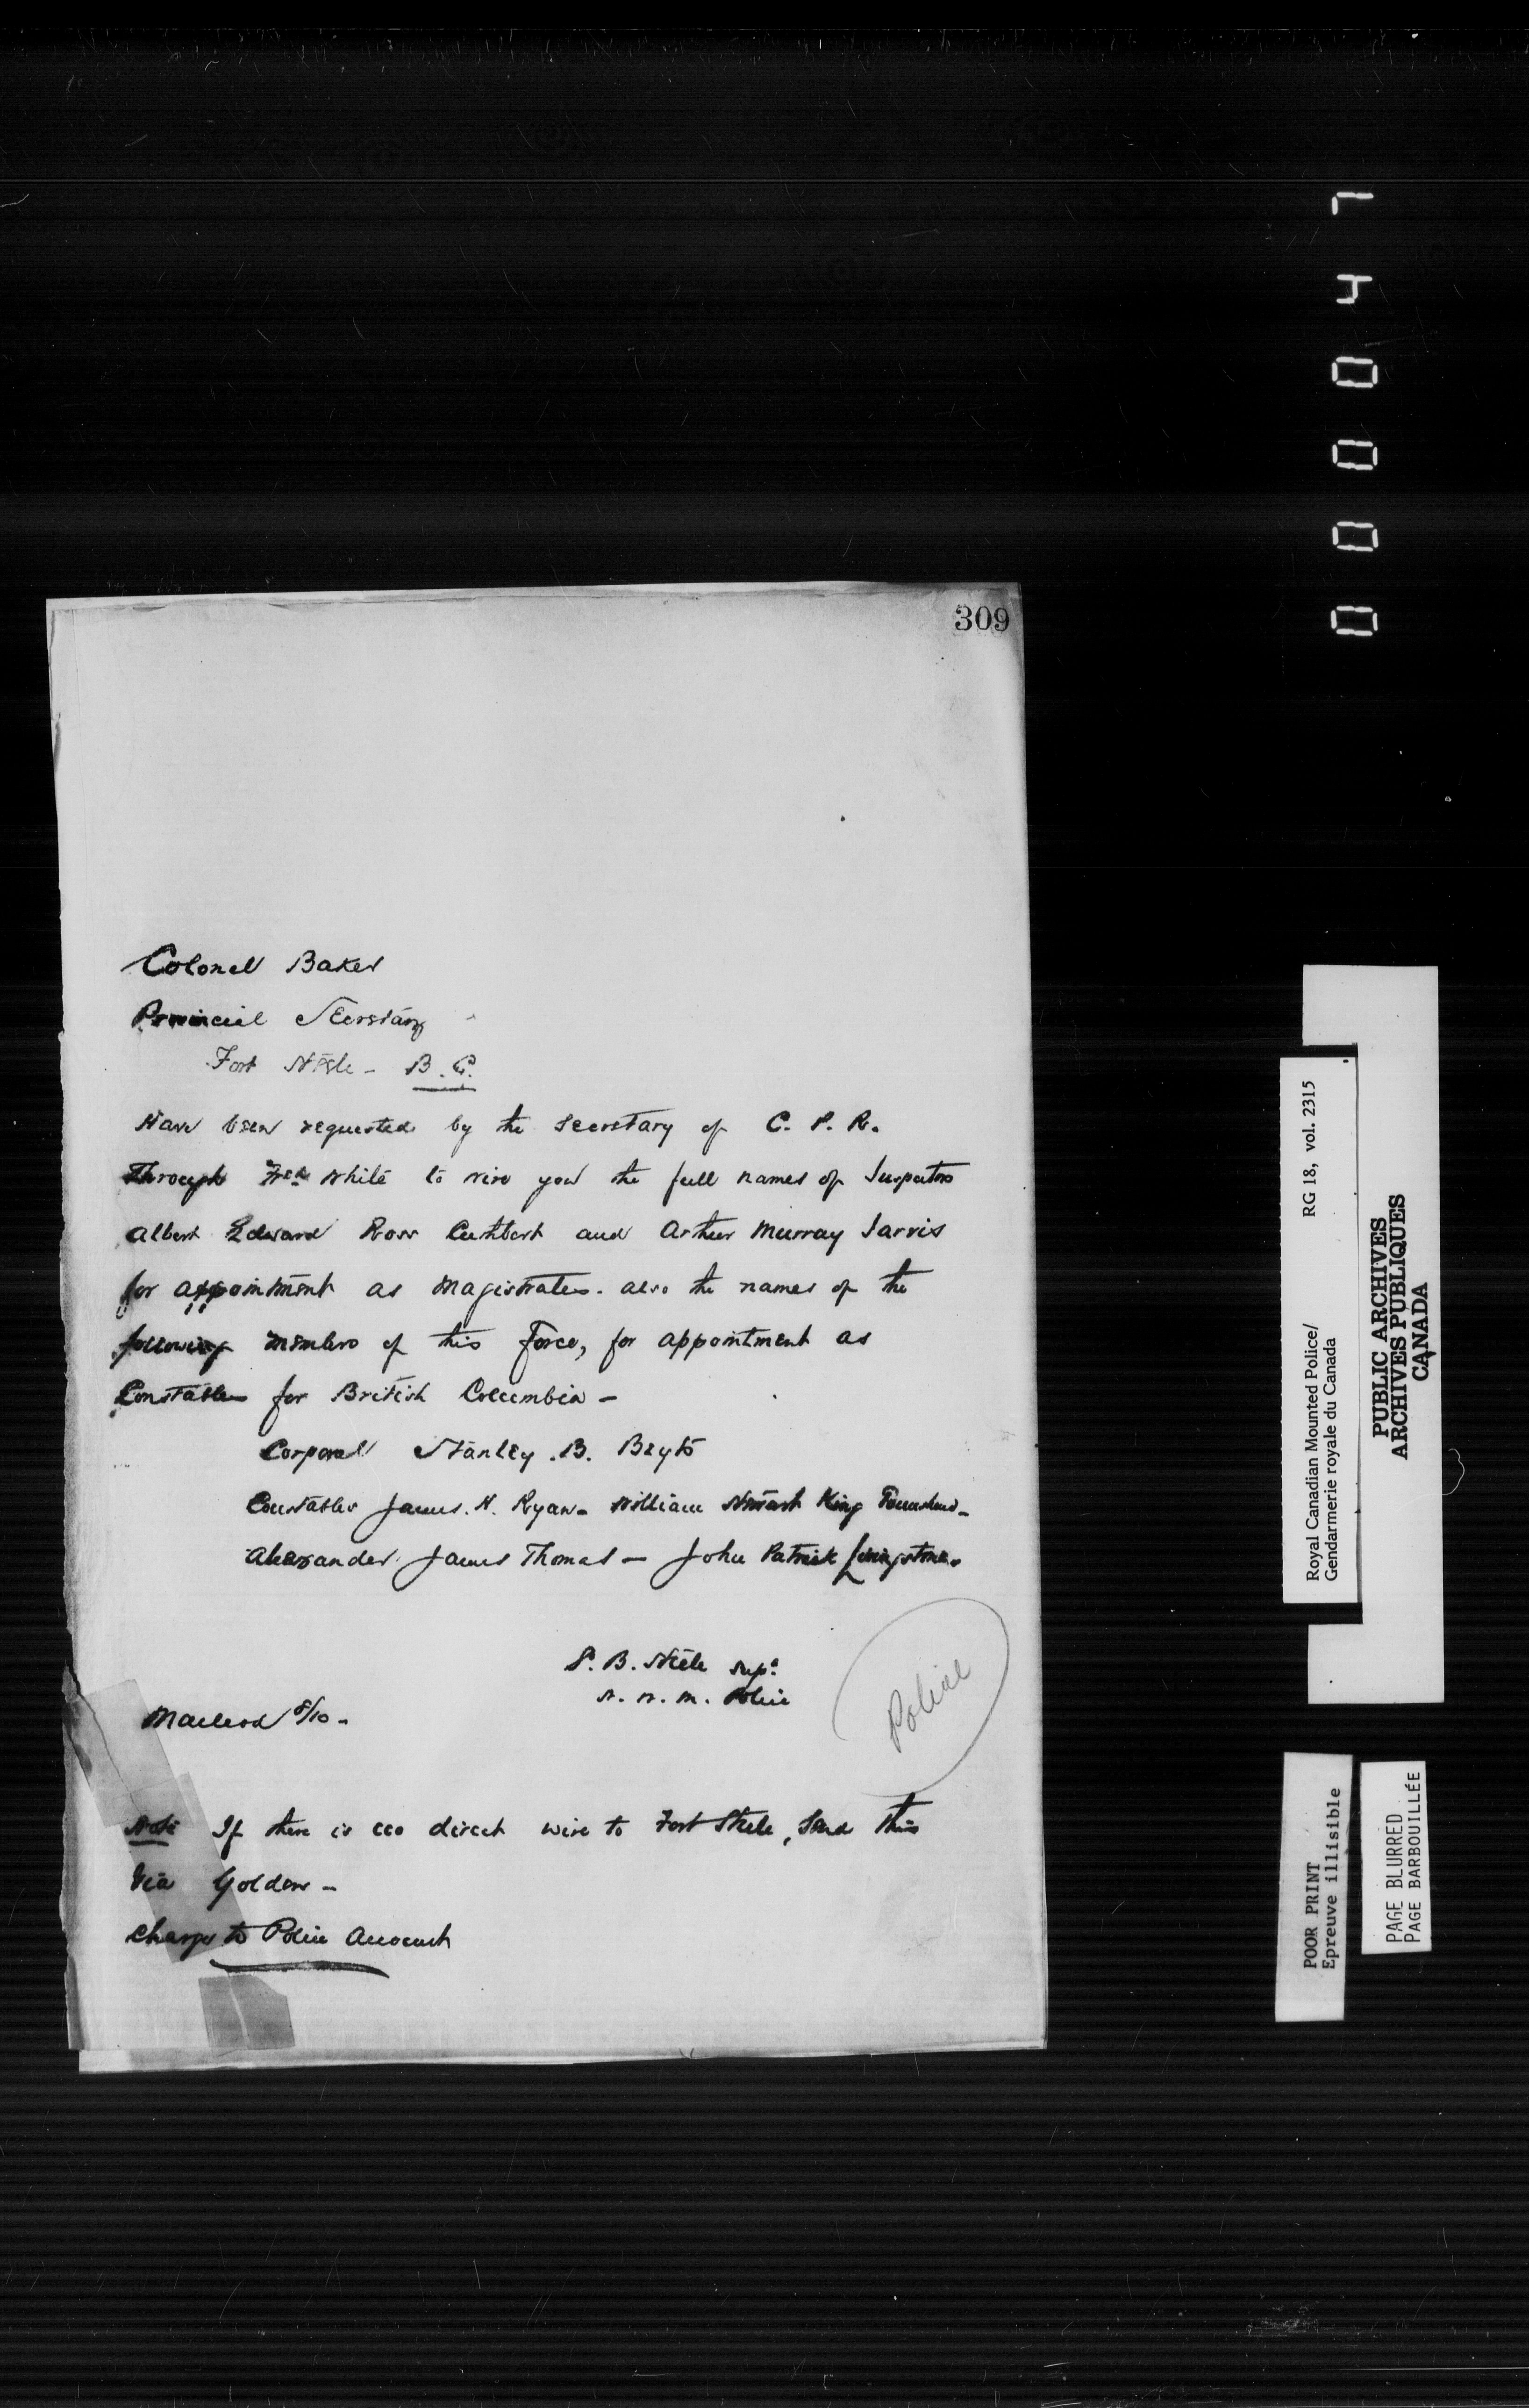 309
Colonel Baker
Provincial Secretary
Fort Steele - B.C.
Have been requested by the secretary of C. P. R.
Through Fred White to wire you the full names of Inspectors
Albert Edward Ross Cuthbert and Arthur Murray Jarvis
for appointment as Magistrates. also the names of the
following members of this Force, for appointment as
Constables for British Columbia -
Corporal Stanley .B.
Constables James. H. Ryan - William Stewart King Townshend -
Alexander James Thomas - John Patrick Livingstone.
S. B. Steele Supt
N. W. M. Police
Macleod 8/10 -
Police
Note If there is no direct wire to Fort Steele, send this
Via Golden -
Charge to Police Account
000047
Royal Canadian Mounted Police/ RG 18, vol. 2315
Gendarmerie royale du Canada
PUBLIC ARCHIVES
ARCHIVES PUBLIQUES
CANADA
POOR PRINT
Epreuve illisible
PAGE BLURRED
PAGE BARBOUILLÉE